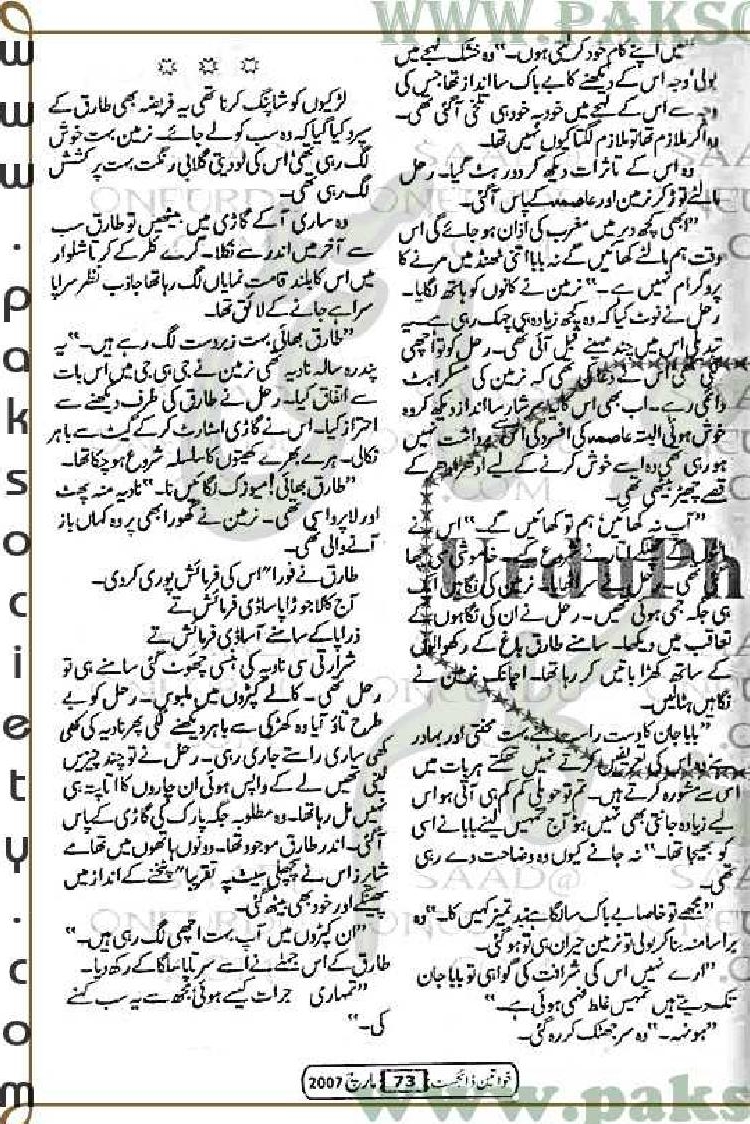 WWW.PAKSO
www.paksociety.com
"میں اپنے کام خود کر لیتی ہوں۔" وہ خشک لہجے میں
بولی وجہ اس کے دیکھنے کا بے باک سا انداز تھا، جس کی
وجہ سے اس کے لہجے میں خود بہ خود ہی تلخی آ گئی تھی۔
وہ اگر ملازم تھا تو ملازم لگتا کیوں نہیں تھا۔
وہ اس کے تاثرات دیکھ کر دور ہٹ گیا۔ رحل
مالٹے توڑ کر نرمین اور عاصمہ کے پاس آ گئی۔
"ابھی کچھ دیر میں مغرب کی اذان ہو جائے گی اس
وقت ہم مالٹے کھائیں گے نہ بابا اتنی ٹھنڈ میں مرنے کا
پروگرام نہیں ہے۔" نرمین نے کانوں کو ہاتھ لگایا۔
رحل نے نوٹ کیا کہ وہ کچھ زیادہ ہی چہک رہی ہے یہ
تبدیلی اس میں چند مہینے قبل آئی تھی۔ رحل کو تو اچھی
لگی تھی اس نے دعا کی تھی کہ نرمین کی مسکراہٹ
دائمی رہے۔ اب بھی اس کا سرشار سا انداز دیکھ کر وہ
خوش ہوئی البتہ عاصمہ کی افسردگی اس سے برداشت نہیں
ہو رہی تھی وہ اسے خوش کرنے کے لیے ادھر ادھر کے
قصے چھیڑ بیٹھی تھی۔
"آپ نہ کھائیں ہم تو کھائیں گے۔" اس نے
چھلکے اتارنے شروع کیے۔ خاموشی
تھی۔ رحل نے سر اٹھایا۔ نرمین کی نگاہیں ایک
ہی جگہ جمی ہوئی تھیں۔ رحل نے ان کی نگاہوں کے
تعاقب میں دیکھا۔ سامنے طارق باغ کے رکھوالوں
کے ساتھ کھڑا باتیں کر رہا تھا۔ اچانک نرمین نے
نگاہیں ہٹا لیں۔
"بابا جان کا دست راست ہے بہت محنتی اور بہادر
ہے وہ اس کی تعریفیں کرتے نہیں تھکتے ہر بات میں
اس سے مشورہ کرتے ہیں۔ تم تو حویلی کم کم ہی آتی ہو اس
لیے زیادہ جانتی بھی نہیں ہو آج تمہیں لینے بابا نے اسی
کو بھیجا تھا۔" نہ جانے کیوں وہ وضاحت دے رہی
تھی۔
"مجھے تو خاصا بے باک سا لگا ہے بدتمیز کہیں کا۔" وہ
برا سا منہ بنا کر بولی تو نرمین حیران ہی تو ہو گئی۔
"ارے نہیں اس کی شرافت کی گواہی تو بابا جان
تک دیتے ہیں تمہیں غلط فہمی ہوئی ہے۔"
"ہونہہ۔" وہ سر جھٹک کر رہ گئی۔
لڑکیوں کو شاپنگ کرنا تھی یہ فریضہ بھی طارق کے
سپرد کیا گیا کہ وہ سب کو لے جائے۔ نرمین بہت خوش
لگ رہی تھی اس کی لو دیتی گلابی رنگت بہت پر کشش
لگ رہی تھی۔
وہ ساری آ کے گاڑی میں بیٹھیں تو طارق سب
سے آخر میں اندر سے نکلا۔ گرے کلر کے کرتا شلوار
میں اس کا بلند قامت نمایاں لگ رہا تھا جاذب نظر سراپا
سراہے جانے کے لائق تھا۔
"طارق بھائی بہت زبردست لگ رہے ہیں۔" یہ
پندرہ سالہ نادیہ تھی نرمین نے جی ہی جی میں اس بات
سے اتفاق کیا۔ رحل نے طارق کی طرف دیکھنے سے
احتراز کیا۔ اس نے گاڑی اسٹارٹ کر کے گیٹ سے باہر
نکالی۔ ہرے بھرے کھیتوں کا سلسلہ شروع ہو چکا تھا۔
"طارق بھائی! میوزک لگائیں نا۔" نادیہ منہ پھٹ
اور لاپروا سی تھی۔ نرمین نے گھورا بھی پر وہ کہاں باز
آنے والی تھی۔
طارق نے فوراً اس کی فرمائش پوری کر دی۔
آج کالا جوڑا پا ساڈی فرمائش تے
ذرا پا کے سامنے آ ساڈی فرمائش تے
شرارتی سی نادیہ کی ہنسی چھوٹ گئی سامنے ہی تو
رحل تھی۔ کالے کپڑوں میں ملبوس۔ رحل کو بے
طرح تاؤ آیا وہ کھڑکی سے باہر دیکھنے لگی پھر نادیہ کی کھی
کھی ساری راستے جاری رہی۔ رحل نے تو چند چیزیں
لینی تھیں لے کے واپس ہوئی ان چاروں کا اتا پتہ ہی
نہیں مل رہا تھا۔ وہ مطلوبہ جگہ پارک کی گاڑی کے پاس
آ گئی۔ اندر طارق موجود تھا۔ دونوں ہاتھوں میں تھامے
شاپرز اس نے پچھلی سیٹ پہ تقریباً پٹخنے کے انداز میں
پھینکے اور خود بھی بیٹھ گئی۔
"ان کپڑوں میں آپ بہت اچھی لگ رہی ہیں۔"
طارق کے اس جملے نے اسے سر تاپا سلگا کے رکھ دیا۔
"تمہاری جرات کیسے ہوئی مجھ سے یہ سب کہنے
کی۔"
UrduPh
خواتین ڈائجسٹ 73 مارچ 2007
www.paks